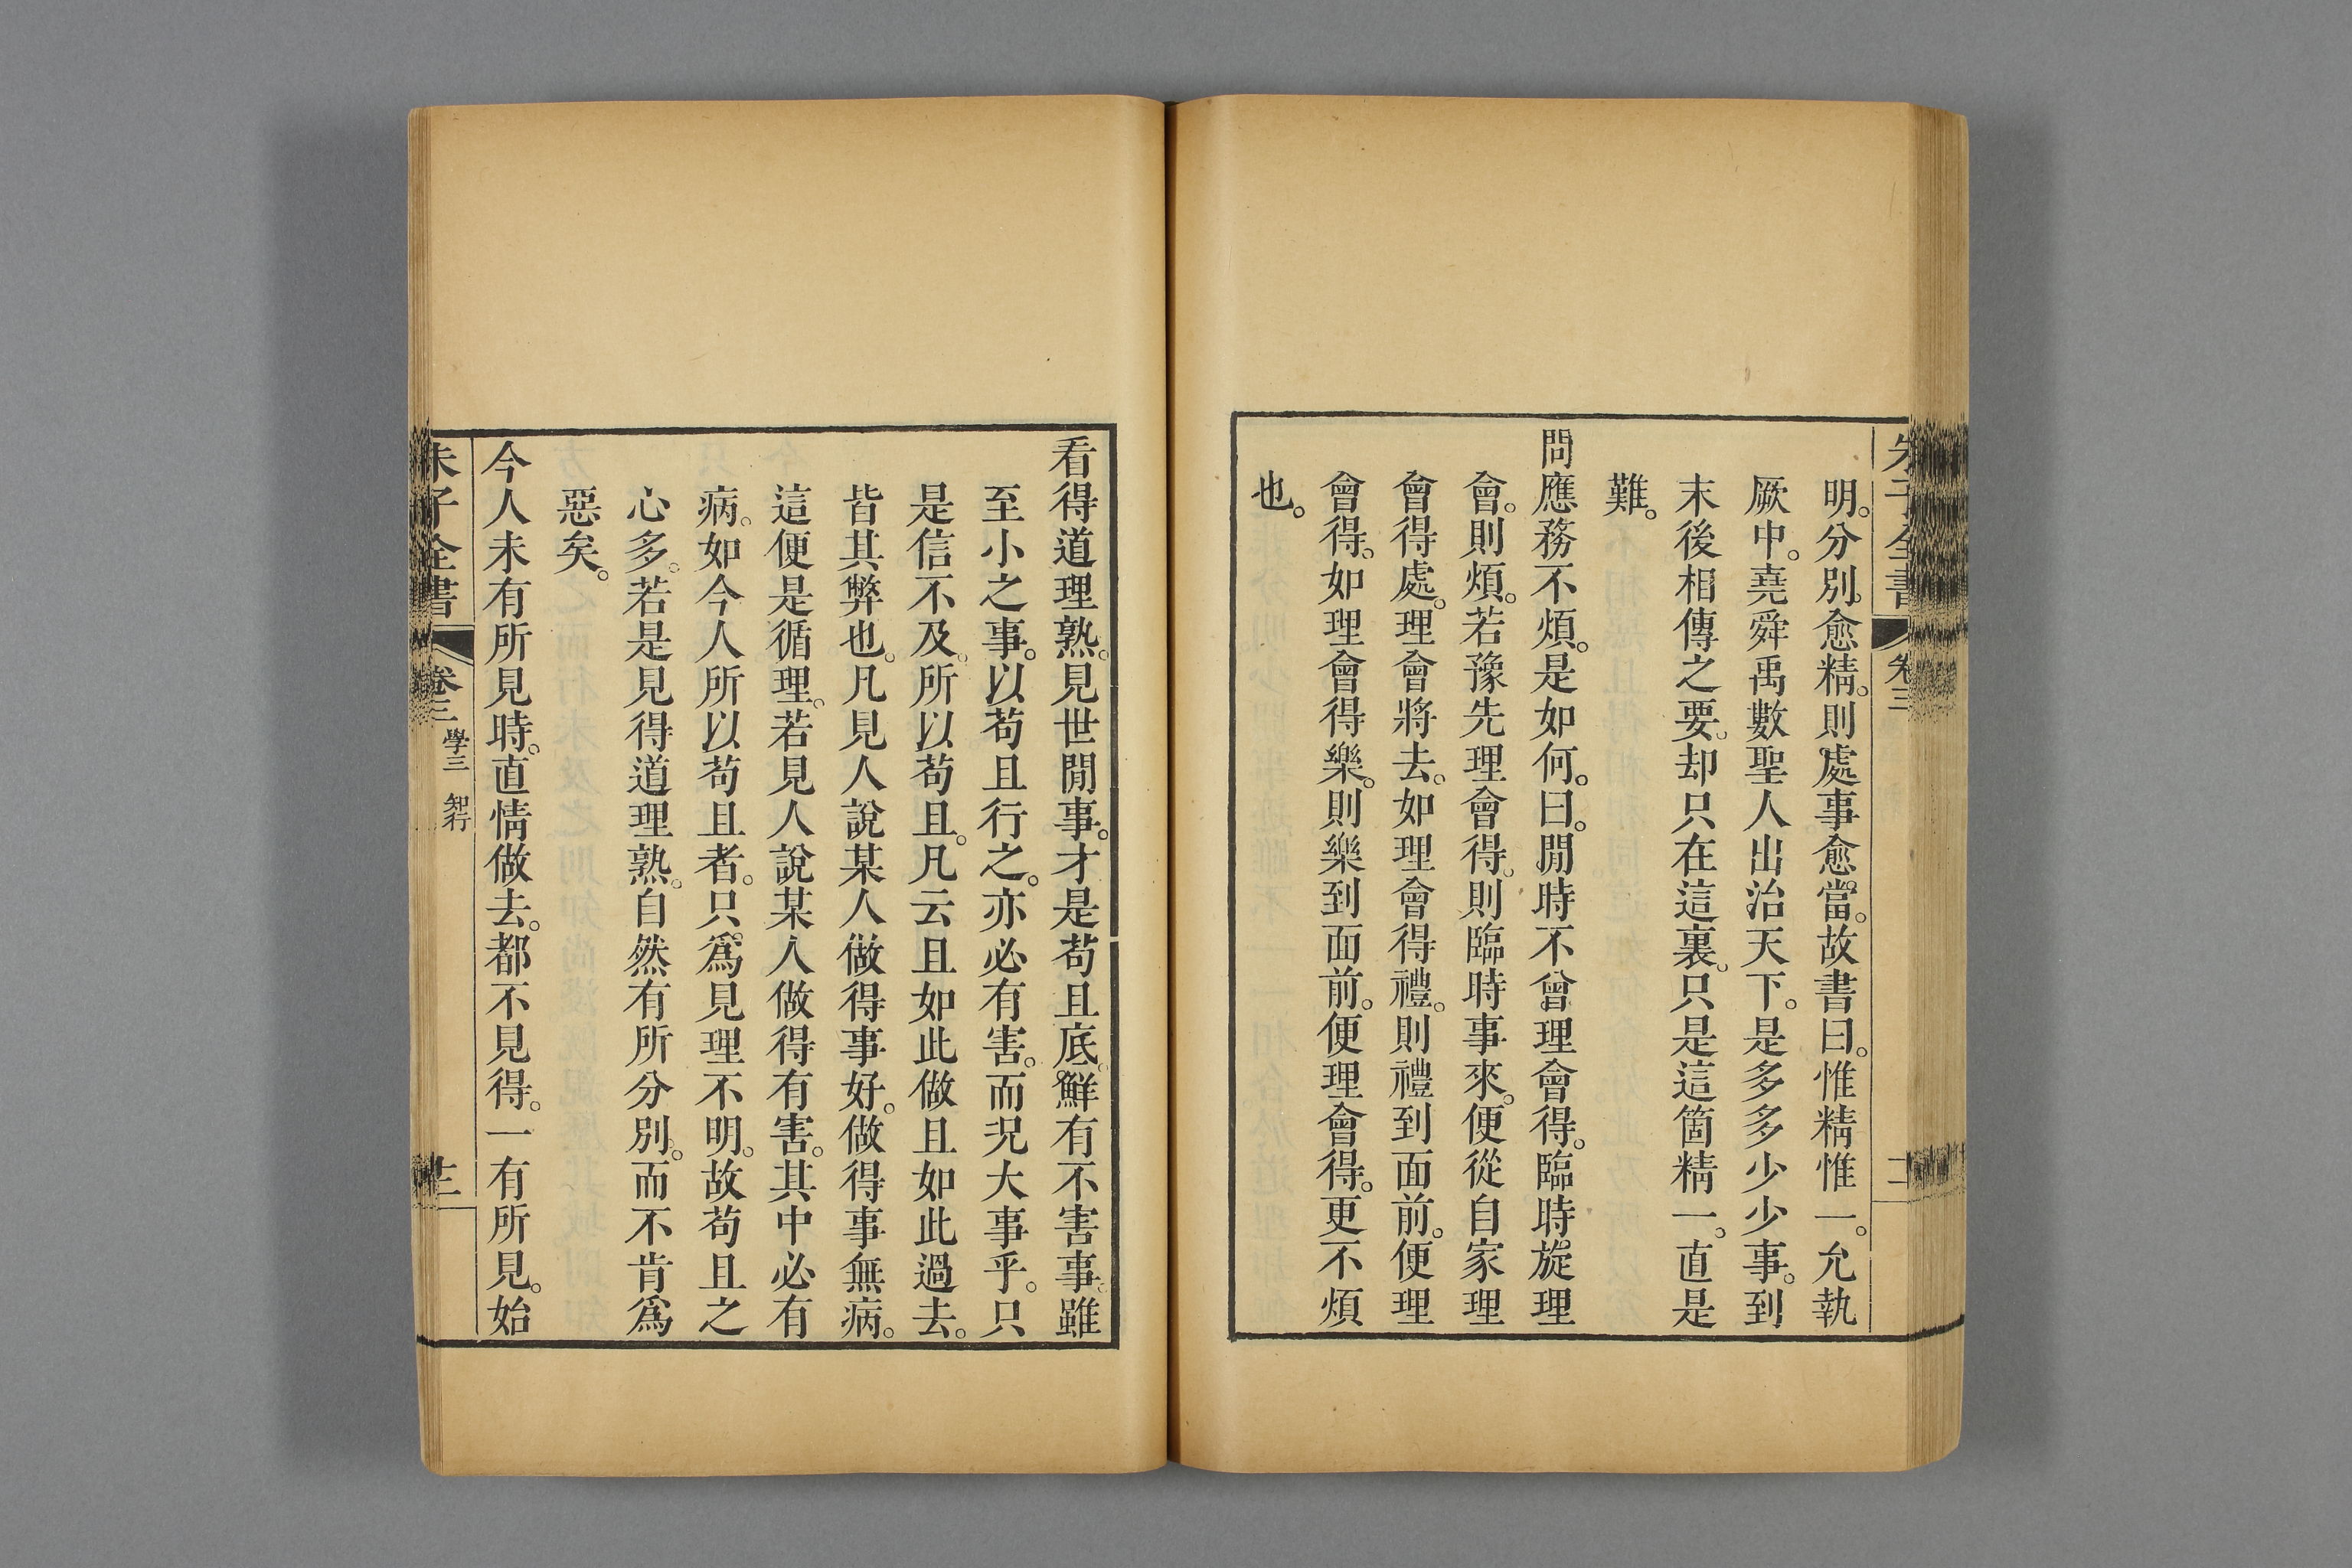 朱子全書 卷三
明。分別。愈精。則處事愈當。故書曰。惟精惟一。允執
厥中。堯舜禹數聖人出治天下。是多多少少事。到
末後相傳之要。却只在這裏。只是這箇精一。直是
難。
問應務不煩。是如何。曰。閒時不曾理會得。臨時旋理
會。則煩。若豫先理會得。則臨時事來。便從自家理
會得處。理會將去。如理會得禮。則禮到面前。便理
會得。如理會得樂。則樂到面前。便理會得。更不煩
也。
看得道理熟。見世閒事。才是苟且底。鮮有不害事。雖
至小之事。以苟且行之。亦必有害。而況大事乎。只
是信不及。所以苟且。凡云且如此做且如此過去。
皆其弊也。凡見人說某人做得事好。做得事無病。
這便是循理。若見人說某人做得有害。其中必有
病。如今人所以苟且者。只爲見理不明。故苟且之
心多。若是見得道理熟。自然有所分別。而不肯爲
惡矣。
今人未有所見時。直情做去。都不見得。一有所見。始
朱子全書 卷三 學三 知行